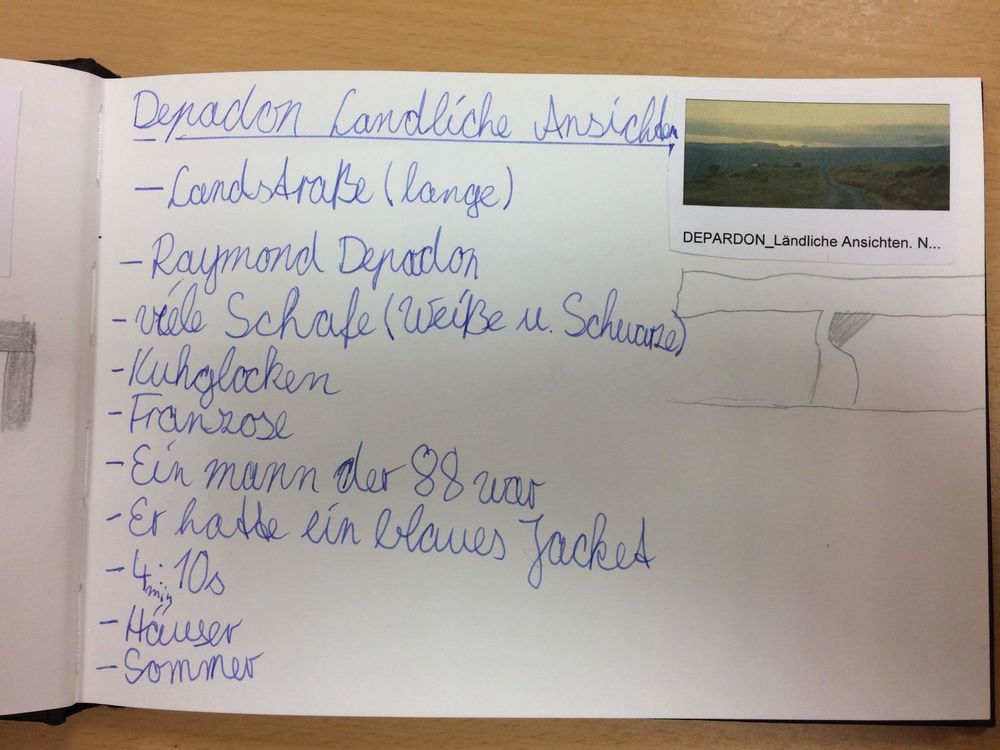 Depadon Landliche Ansichten
DEPARDON_Ländliche Ansichten. N...
- Landstraße (lange)
- Raymond Depadon
- viele Schafe (Weiße u. Schwarze)
- Kuhglocken
- Franzose
- Ein mann der 88 war
- Er hatte ein blaues Jacket
- 4min: 10s
- Häuser
- Sommer